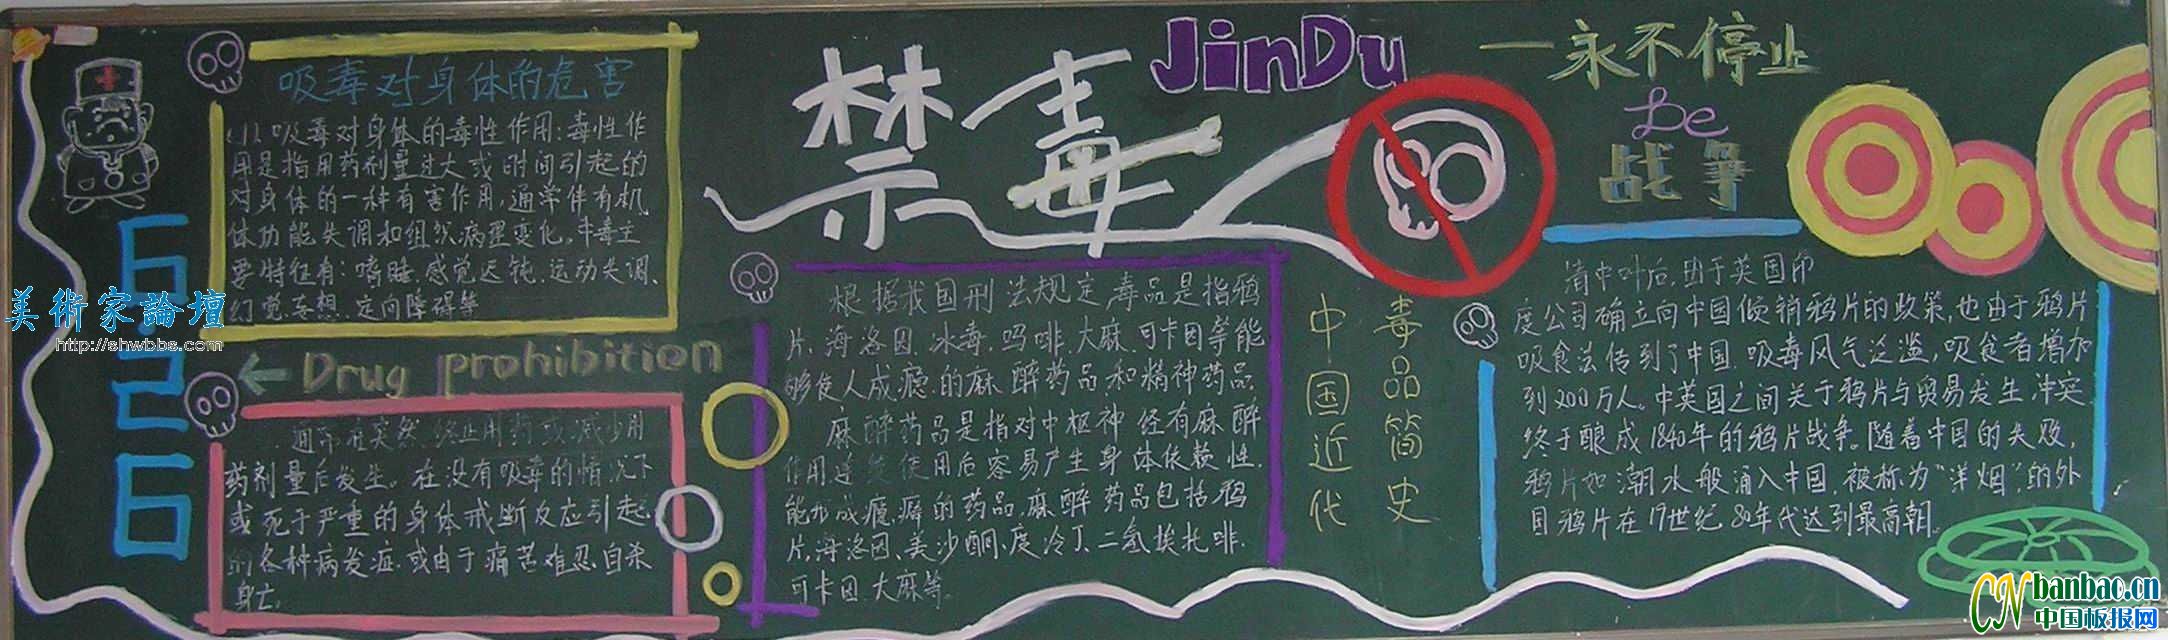 吸毒对身体的危害
(1)吸毒对身体的毒性作用:毒性作
用是指用药剂量过大或时间引起的
对身体的一种有害作用,通常伴有机
体功能失调和组织病理变化。中毒主
要特征有:嗜睡、感觉迟钝、运动失调、
幻觉、妄想、定向障碍等
6.26
美術家論壇
http://shwbbs.com
← Drug prohibition
通常在突然终止用药或减少用
药剂量后发生。在没有吸毒的情况下
或死于严重的身体戒断反应引起
的各种病发症或由于痛苦难忍自杀
身亡。
禁毒
JinDu
一永不停止
De
战争
根据我国刑法规定毒品是指鸦
片、海洛因、冰毒、吗啡、大麻、可卡因等能
够使人成瘾的麻醉药品和精神药品
麻醉药品是指对中枢神经有麻醉
作用连续使用后容易产生身体依赖性、
能形成瘾癖的药品,麻醉药品包括鸦
片,海洛因、美沙酮、度冷丁、二氢埃托啡、
可卡因、大麻等。
中国近代
毒品简史
清中叶后,由于英国印
度公司确立向中国倾销鸦片的政策,也由于鸦片
吸食法传到了中国,吸毒风气泛滥,吸食者增加
到200万人。中英国之间关于鸦片与贸易发生冲突
终于酿成1840年的鸦片战争。随着中国的失败,
鸦片如潮水般涌入中国,被称为“洋烟”的外
国鸦片在19世纪80年代达到最高朝。
CNbanbao.cn
中国板报网